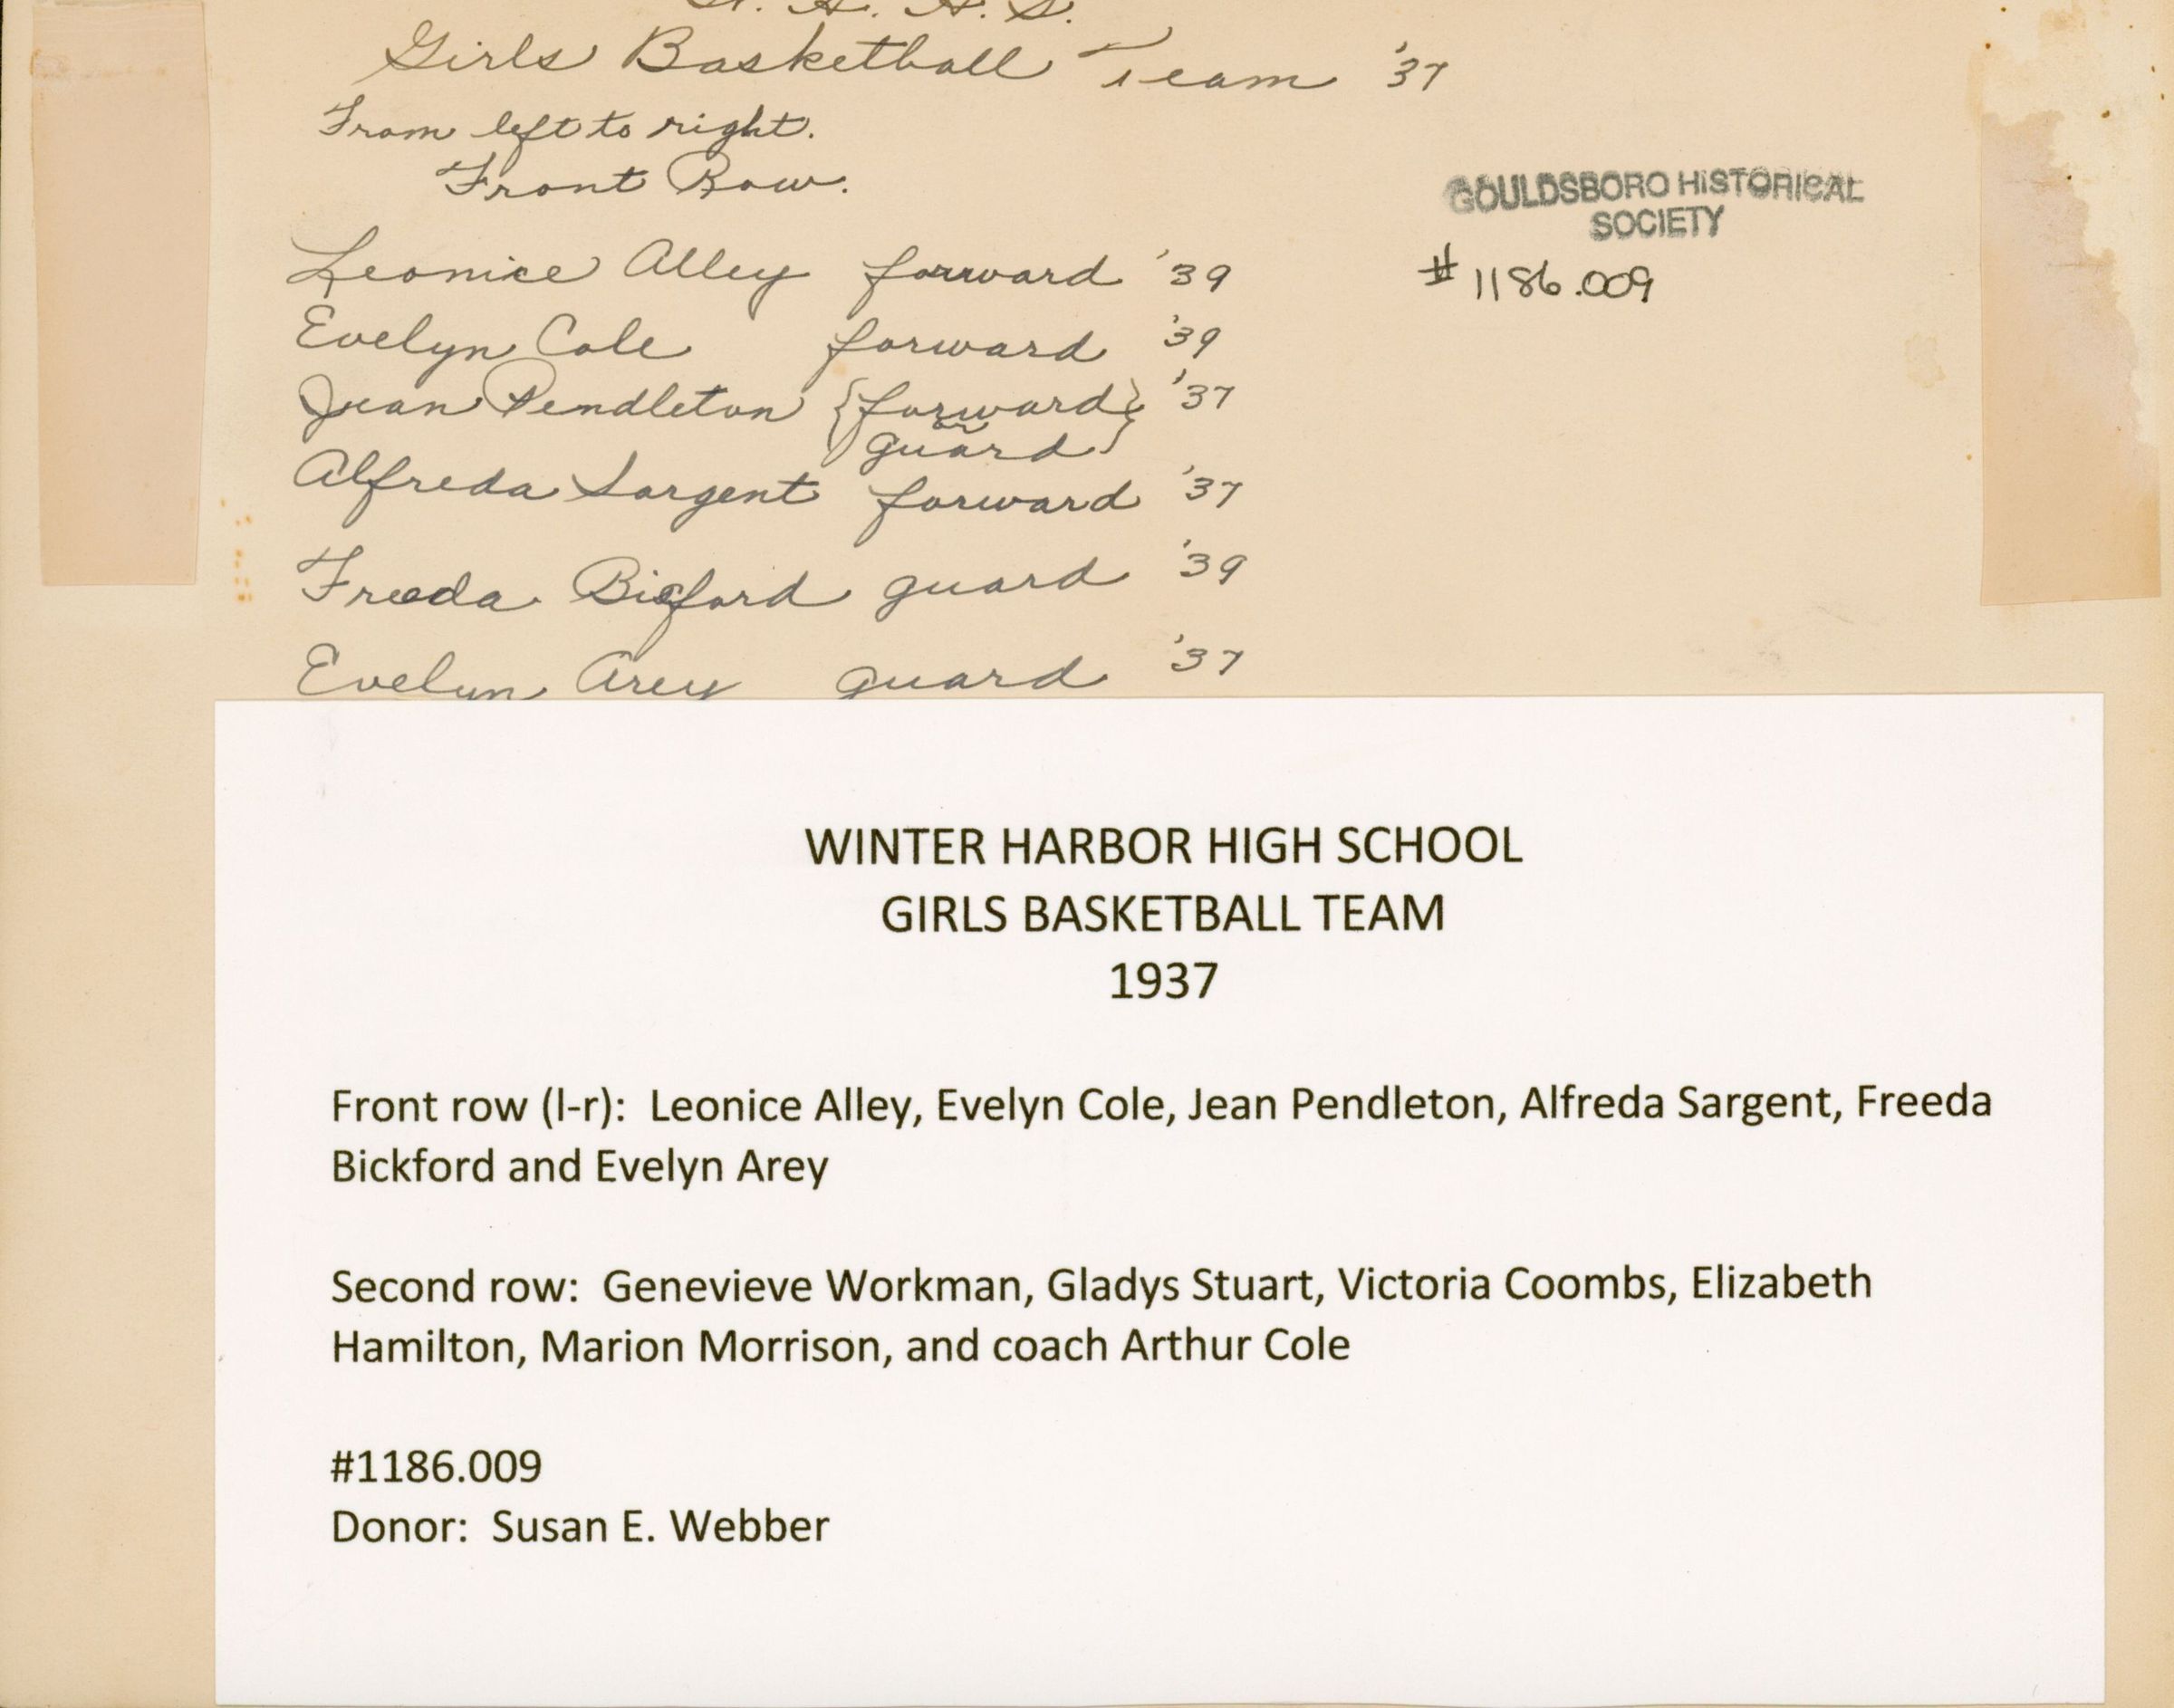 W. H. H. S.
Girls Basketball Team '37
From left to right.
Front Row.
GOULDSBORO HISTORICAL
SOCIETY
#1186.009
Leonice Alley forward '39
Evelyn Cole forward '39
Jean Pendleton {forward} '37
or
guard
Alfreda Sargent forward '37
Freeda Bicford guard '39
Evelyn Arey guard '37
WINTER HARBOR HIGH SCHOOL
GIRLS BASKETBALL TEAM
1937
Front row (l-r): Leonice Alley, Evelyn Cole, Jean Pendleton, Alfreda Sargent, Freeda
Bickford and Evelyn Arey
Second row: Genevieve Workman, Gladys Stuart, Victoria Coombs, Elizabeth
Hamilton, Marion Morrison, and coach Arthur Cole
#1186.009
Donor: Susan E. Webber